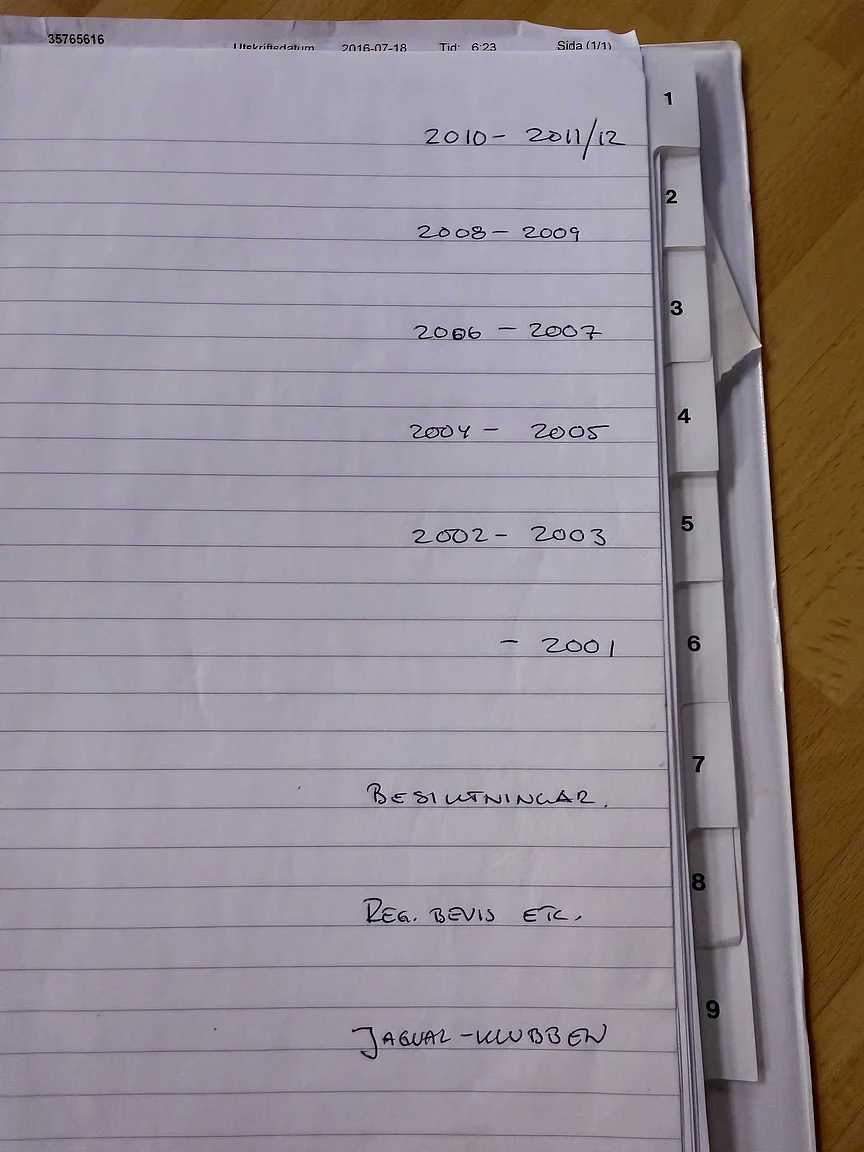 35765616 Utskriftsdatum 2016-07-18 Tid: 6:23 Sida (1/1)
1
2010- 2011/12
2
2008- 2009
3
2006 - 2007
4
2004 - 2005
5
2002- 2003
6
- 2001
7
BESIKTNINGAR.
8
REG. BEVIS ETC.
9
JAGUAR-KLUBBEN